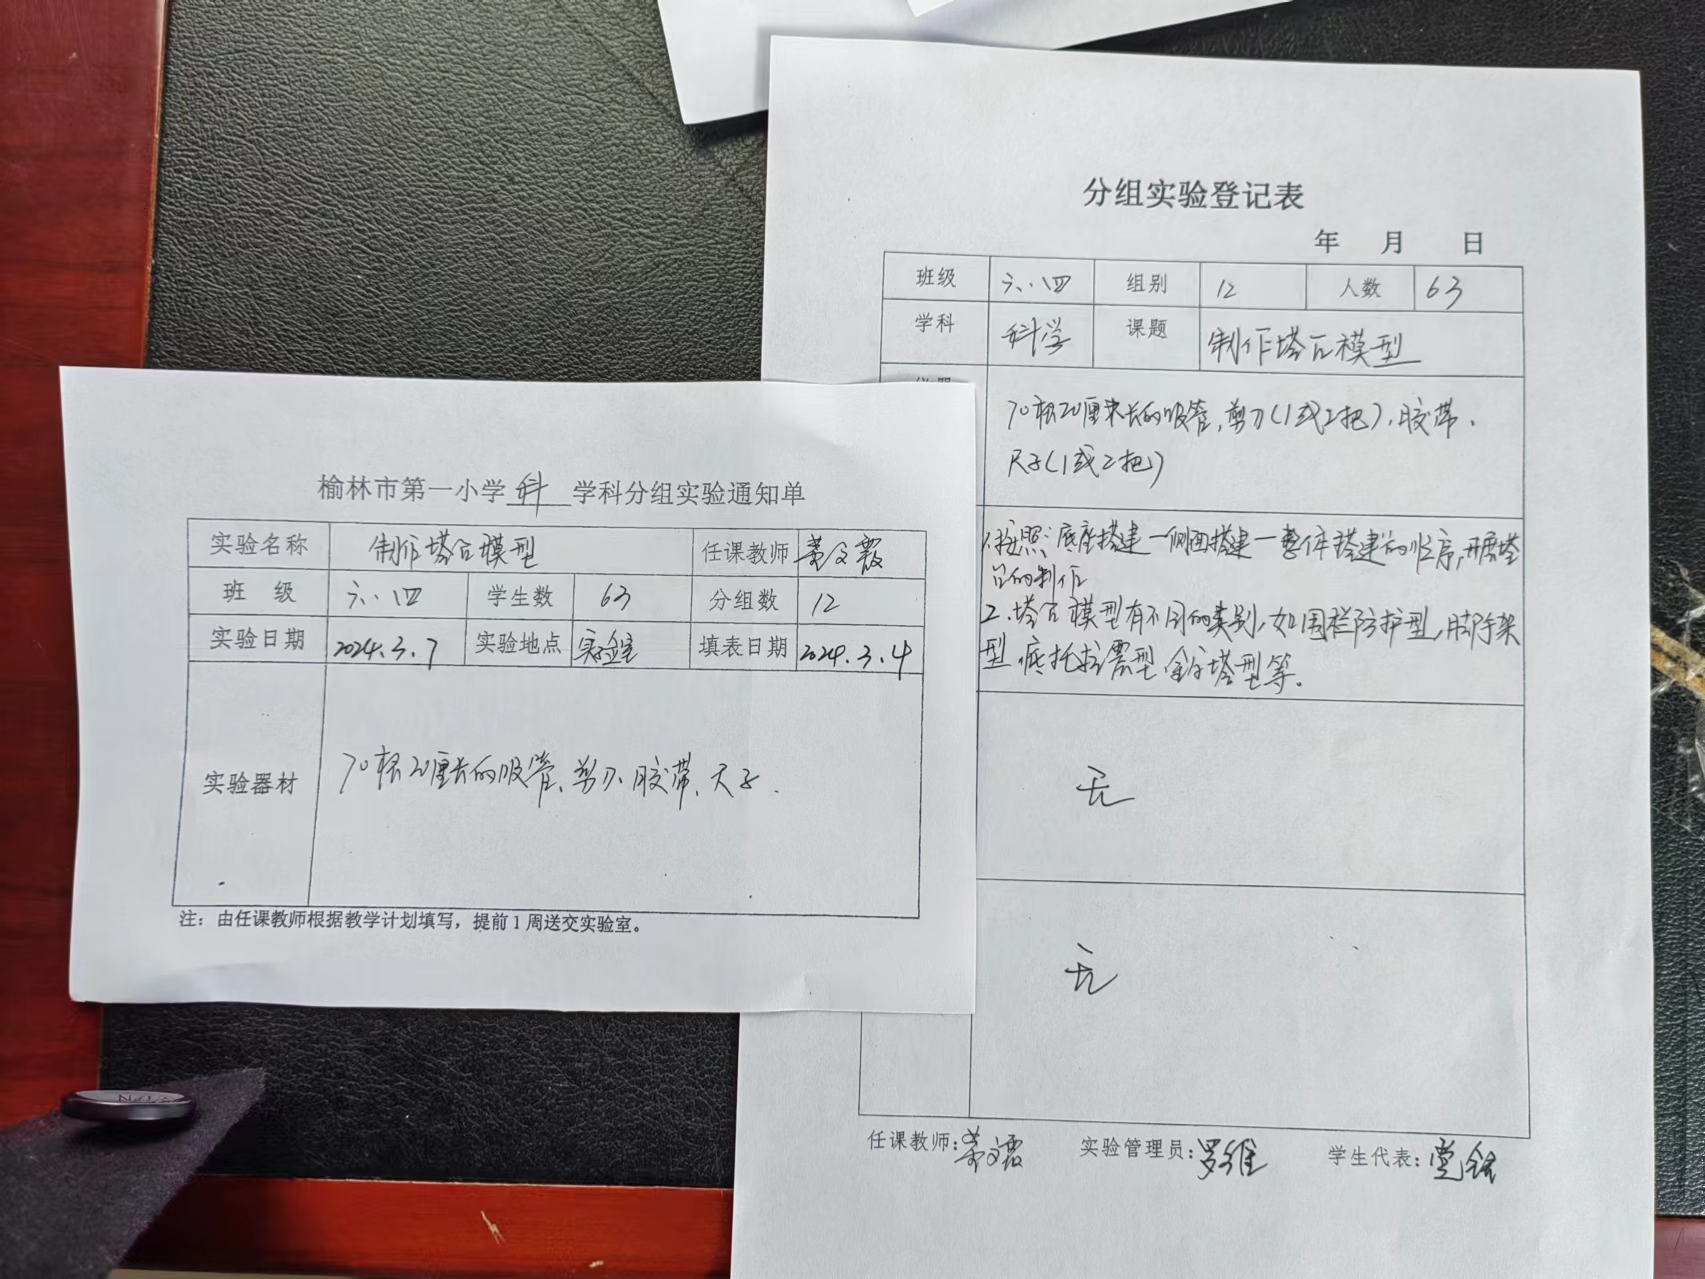 榆林市第一小学 科 学科分组实验通知单
实验名称 制作塔台模型 任课教师
班 级 六、四 学生数 63 分组数 12
实验日期 2024.3.7 实验地点 实验室 填表日期 2024.3.4
实验器材 70根20厘长的吸管、剪刀、胶带、尺子.
注：由任课教师根据教学计划填写，提前1周送交实验室。
分组实验登记表
年 月 日
班级 六、四 组别 12 人数 63
学科 科学 课题 制作塔台模型
70根20厘米长的吸管，剪刀(1或2把)、胶带、
尺子(1或2把)
1.按照:底座搭建—侧面搭建—整体搭建的顺序，开展塔
台的制作
2.塔台模型有不同的类别，如围栏防护型，脚手架
型 底托抗震型 金字塔型等.
无
无
任课教师: 实验管理员:罗维 学生代表: